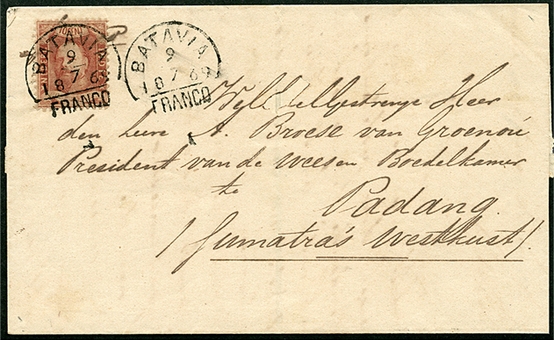 BATAVIA
9
7
1869
FRANCO
BATAVIA
9
7
1869
FRANCO
Heer
den heere A. Broese van Groenou
President van de Weesen Boedelkamer
te
Padang
/ Sumatra's Westkust /.